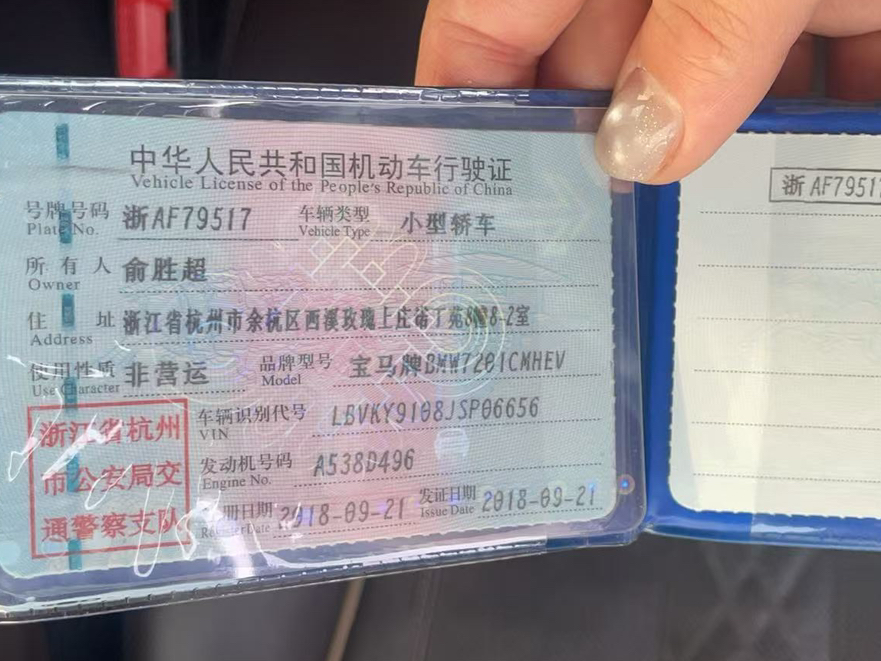 中华人民共和国机动车行驶证
Vehicle License of the People's Republic of China
号牌号码 浙AF79517 车辆类型 小型轿车
Plate No. Vehicle Type
所有人 俞胜超
Owner
住址 浙江省杭州市余杭区西溪玫瑰上庄蒂丁苑8幢8-2室
Address
使用性质 非营运 品牌型号 宝马牌BMW7201CMHEV
Use Character Model
车辆识别代号 LBVKY9108JSP06656
VIN
发动机号码 A538D496
Engine No.
册日期 2018-09-21 发证日期 2018-09-21
Register Date Issue Date
浙江省杭州
市公安局交
通警察支队
浙AF79517